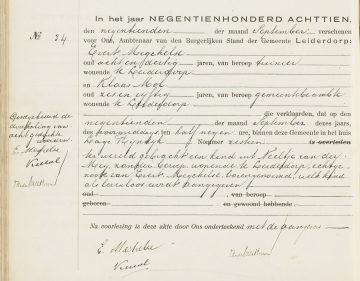 In het jaar NEGENTIENHONDERD ACHTTIEN,
No 24
den negentienden der maand September verschenen
voor Ons, Ambtenaar van den Burgerlijken Stand der Gemeente Leiderdorp:
Evert Meychelse
oud achtendertig jaren, van beroep tuinier
wonende te Leiderdorp
en Klaas Mol
oud zes en vijftig jaren, van beroep gemeentebeambte
wonende te Leiderdorp
die verklaarden, dat op den
negentienden der maand September dezes jaars,
des voormiddags ten half negen ure, binnen deze Gemeente in het huis
Hooge Rijndijk Nommer zestien is overleden
ter wereld gebracht een kind uit Neeltje van der
Meij, zonder beroep, wonende te Leiderdorp, echtge-
noote van Evert Meychelse, bovengenoemd, welk kind
als levenloos wordt aangegeven
oud van beroep
geboren en gewoond hebbende
Goedgekeurd de
doorhaling van
acht gedrukte
woorden
E.
Na voorlezing is deze akte door Ons onderteekend met de aangevers
E.